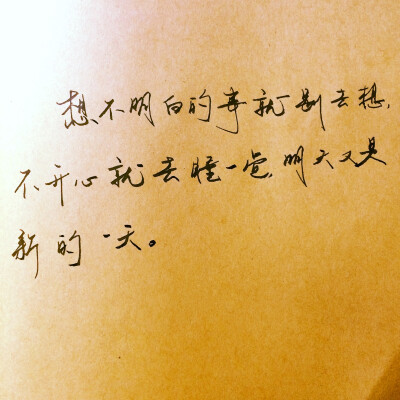 想不明白的事就别去想,
不开心就去睡一觉,明天又是
新的一天。